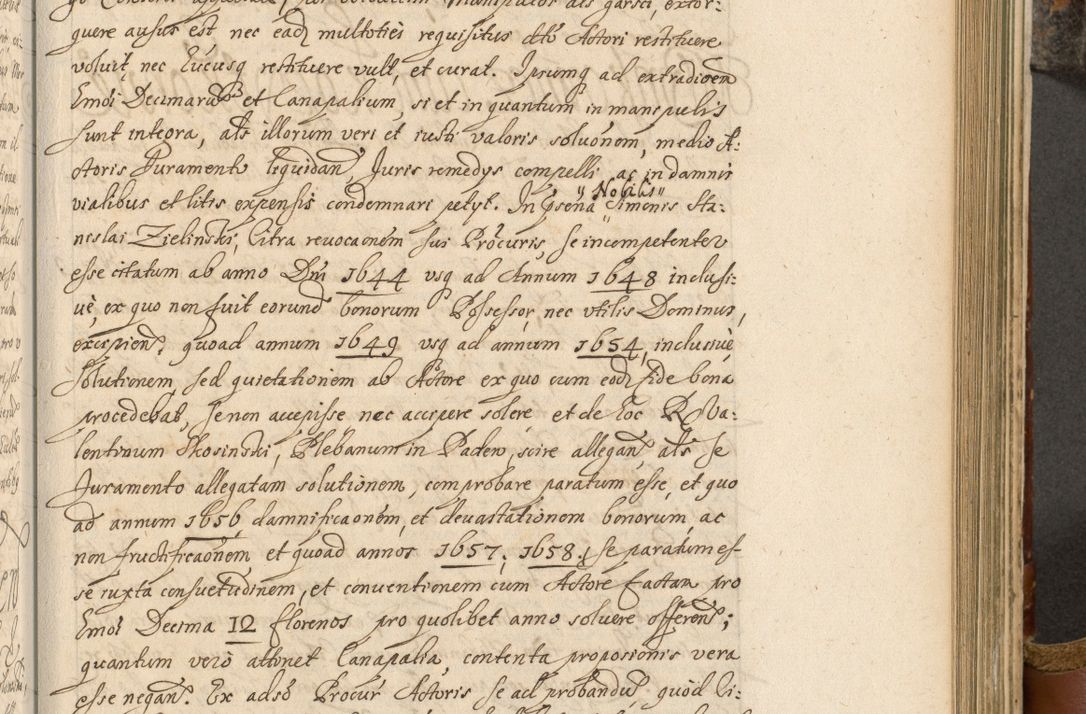 quere ausus est nec eadḙ multoties requisitus dtō Actori restituere
voluit, nec hucusq restituere vult, et curat. Ipsumq ad extradicōem
hmōi Decimarū et Canapalium, si et in quantum in manipulis
sunt integra, als illorum veri et iusti valoris soluōnem, medio A:
ctoris Juramento liquidan̄, Juris remedys compelli, ac in damnis
vialibus et litis expensis condemnari petyt. In p̄sēna " Nobilis " Simonis Sta:
nislai Zielinski, Citra reuocaōnem sui Procuris, se incompetenter
esse citatum ab anno Dn̄i 1644 vsq ad Annum 1648 inclusi:
uè, ex quo non fuit eorund bonorum Possessor, nec vtilis Dominus,
excipien, quoad annum 1649 vsq ad annum 1654, inclusiuè,
solutionem, sed quietationem ab Actore ex quo cum eod fide bona
procedebat, se non accepisse nec accipere solere et de hoc R Va:
lentinum Skosinski, Plebanum in Padew, scire allegan, als se
Juramento allegatam solutionem, comprobare paratum esse, et quo
ad annum 1656 damnificaonem, et deuastationem bonorum, ac
non fructificaōnem, et quoad annos 1657, 1658, se paratum es-
se iuxta consuetudinem, et conventionem cum Actore factam pro
hmōi Decima 12 florenos pro quolibet anno soluere offeren;
quantum verò attinet Canapalia, contenta proposionis vera
esse negan. Ex adsō Procur Actoris se ad probandū quòd Ci: